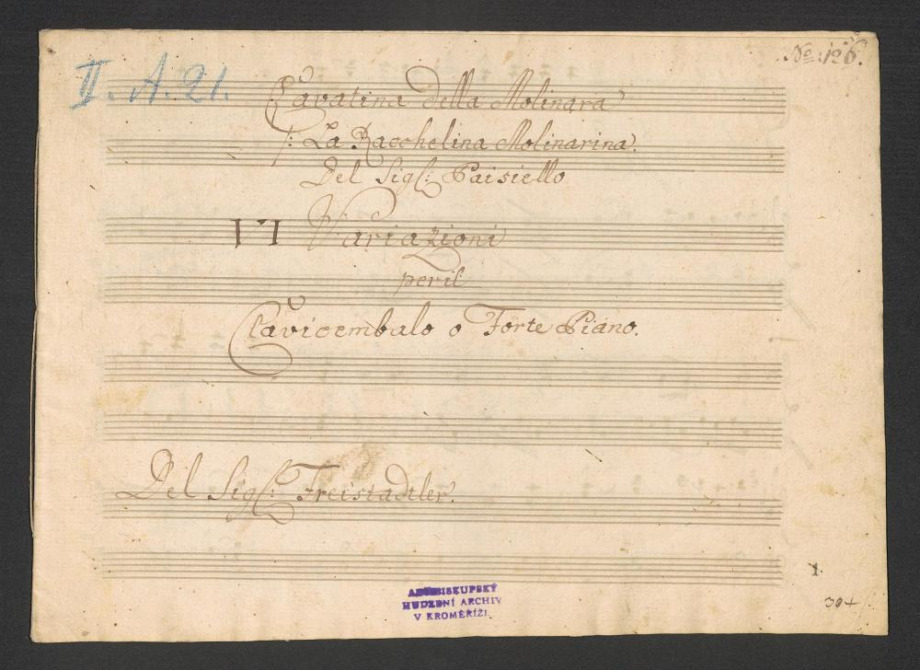 II. A. 21.
No: 126.
Cavatina della Molinara
/: La Racchelina Molinarina.
Del Sig: Paisiello
VI Variazioni
per il
Clavicembalo o Forte Piano.
Del Sig: Freistadtler.
1.
ARCIBISKUPSKÝ
HUDEBNÍ ARCHIV
V KROMĚŘÍŽI